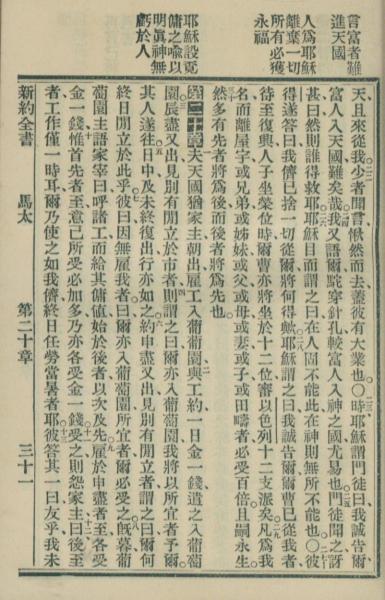 言富者難
進天國
人爲耶穌
離棄一切
所有必獲
永福
耶穌設覓
傭之喩以
明眞神無
虧於人
天且來從我少者聞言愀然而去蓋彼有大業也〇時耶穌謂門徒曰我誠告爾
富人入天國難矣哉我又語爾駝穿針孔較富人入神之國尤易也門徒聞之訝
甚曰然則誰得救耶耶穌目而謂之曰在人固不能此在神則無所不能也〇彼
得遂答曰我儕已捨一切從爾將何得歟耶穌謂之曰我誠告爾爾曹已從我者
待至復興人子坐榮位時爾曹亦將坐於十二位審以色列十二支派矣凡爲我
名而離屋宇或兄弟或姊妹或父或母或妻或子或田疇者必受百倍且嗣永生
然而多先者將爲後而後者將爲先也
第二十章夫天國猶家主朝出雇工入葡萄園與工約一日金一錢遣之入葡萄
園辰盡又出見別有閒立於市者則謂之曰爾亦入葡萄園我將以所宜者予爾
其人遂往日中及未終復出行亦如之約申盡又出見別有閒立者謂之曰爾何
終日閒立於此乎彼曰因無雇我者曰爾亦入葡萄園所宜者爾必受之旣暮葡
萄園主語家宰曰呼諸工而給其傭値始於後者以次及先雇於申盡者至各受
金一錢惟首先者至意己所受必加多乃亦各受金一錢受之則怨家主曰後至
者工作僅一時耳爾乃使之如我儕終日任勞當暑者耶彼答其一曰友乎我未
新約全書 馬太 第二十章 三十一